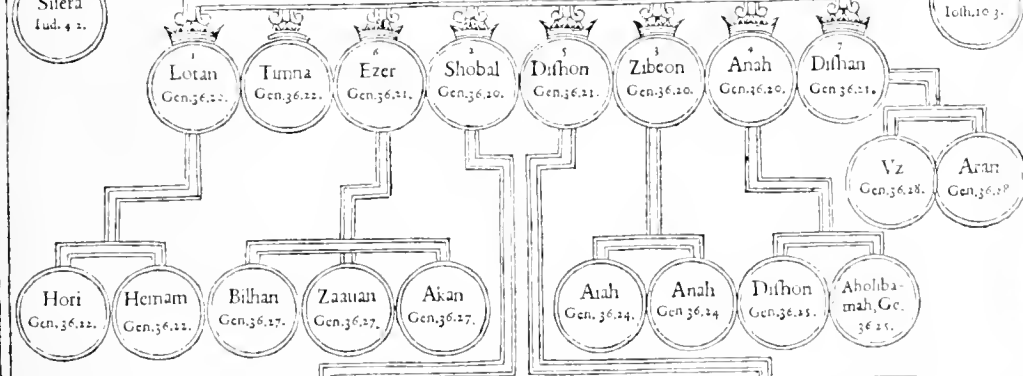 Sisera
Iud. 4 2.
Iosh.10 3.
1
Lotan
Gen.36.20.
Timna
Gen.36.22.
6
Ezer
Gen.36.21.
2
Shobal
Gen.36.20.
5
Diſhon
Gen.36,21.
3
Zibeon
Gen.36.20.
4
Anah
Gen.36.20.
7
Diſhan
Gen.36.21.
Vz
Gen.36.28.
Aran
Gen.36.28
Hori
Gen.36.22.
Hemam
Gen.36.22.
Bilhan
Gen.36.27.
Zaauan
Gen.36.27.
Akan
Gen.36.27.
Aiah
Gen.36.24.
Anah
Gen 36.24
Diſhon
Gen.36.25.
Aholiba-
mah, Ge.
36 25.